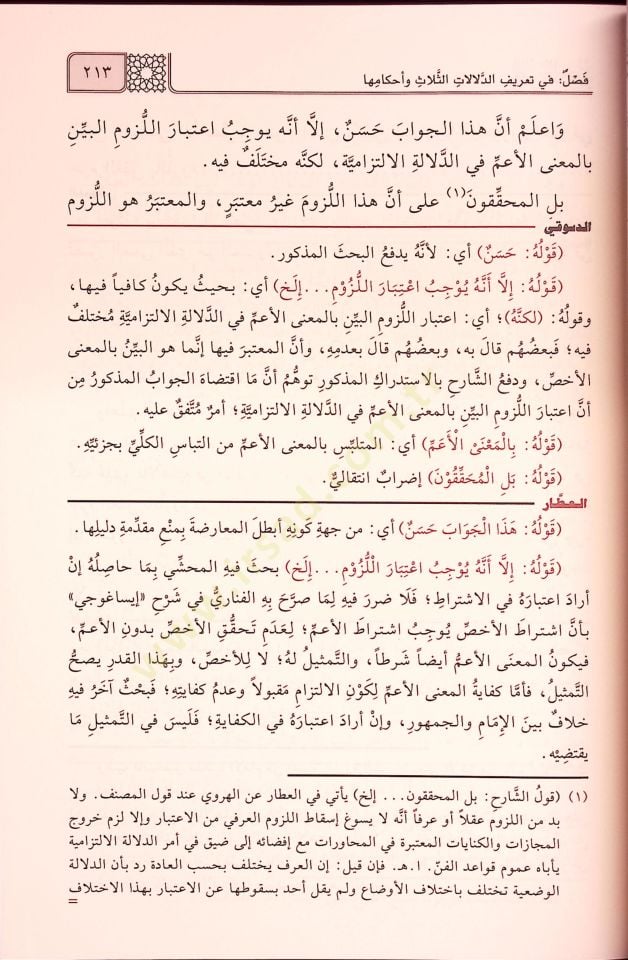 فَصْلٌ: في تعريفِ الدَّلالاتِ الثَّلاثِ وأحكامِها
٢١٣
وَاعلَمْ أنَّ هذا الجوابَ حَسَنٌ، إلَّا أنَّه يوجِبُ اعتبارَ اللُّزومِ البيِّنِ
بالمعنى الأعمِّ في الدَّلالةِ الالتزاميَّة، لكنَّه مختَلَفٌ فيه.
بلِ المحقِّقونَ(١) على أنَّ هذا اللُّزومَ غيرُ معتبَرٍ، والمعتبَرُ هو اللُّزوم
الدسوقي
(قَوْلُهُ: حَسَنٌ) أي: لأنَّهُ يدفعُ البحثَ المذكور.
(قَوْلُهُ: إِلَّا أَنَّهُ يُوْجِبُ اعْتِبَارَ اللُّزُوْمِ...إلَخ) أي: بحيثُ يكونُ كافياً فيها،
وقولُهُ: (لكنَّهُ)؛ أي: اعتبار اللُّزومِ البيِّنِ بالمعنى الأعمِّ في الدَّلالةِ الالتزاميَّةِ مُختلفٌ
فيه؛ فبعضُهُم قال به، وبعضُهُم قالَ بعدمِهِ، وأنَّ المعتبَرَ فيها إنَّما هو البيِّنُ بالمعنى
الأخصِّ، ودفعُ الشَّارحِ بالاستدراكِ المذكورِ توهُّمُ أنَّ مَا اقتضاهُ الجوابُ المذكورُ مِن
أنَّ اعتبارَ اللُّزومِ البيِّنِ بالمعنى الأعمِّ في الدَّلالةِ الالتزاميَّةِ؛ أمرٌ مُتَّفقٌ عليه.
(قَوْلُهُ: بِالْمَعْنَىْ الْأَعَمِّ) أي: المتلبِّسِ بالمعنى الأعمِّ من التباسِ الكلِّيِّ بجزئيِّهِ.
(قَوْلُهُ: بَلِ الْمُحَقِّقُوْنَ) إضرابٌ انتقاليٌّ.
العطَّار
(قَوْلُهُ: هَذَا الْجَوَابَ حَسَنٌ) أي: من جهةِ كَونِهِ أبطلَ المعارضةَ بِمنْعِ مقدِّمةِ دليلِها.
(قَوْلُهُ: إِلَّا أَنَّهُ يُوْجِبُ اعْتِبَارَ اللُّزُوْمِ...إلَخ) بحثَ فيهِ المحشِّي بِمَا حاصلُهُ إنْ
أرادَ اعتبارَهُ في الاشتراطِ؛ فَلَا ضررَ فيهِ لِمَا صرَّحَ بِهِ الفناريُّ في شَرْحِ «إيساغوجي»
بأنَّ اشتراطَ الأخصِّ يُوجِبُ اشتراطَ الأعمِّ؛ لِعدَمِ تَحقُّقِ الأخصِّ بدونِ الأعمِّ،
فيكونُ المعنَى الأعمُّ أيضاً شَرطاً، والتَّمثيلُ لهُ؛ لا لِلأخصِّ، وبِهَذا القدرِ يصحُّ
التَّمثيلُ، فأمَّا كفايةُ المعنى الأعمِّ لِكَوْنِ الالتزامِ مَقبولاً وعدمُ كفايتِهِ؛ فَبَحْثٌ آخَرُ فيهِ
خلافٌ بينَ الإمامِ والجمهورِ، وإنْ أرادَ اعتبارَهُ في الكفايةِ؛ فَلَيسَ في التَّمثيلِ مَا
يقتضِيْه.
(١) (قولُ الشَّارح: بل المحققون... إلخ) يأتي في العطار عن الهروي عند قول المصنف. ولا
بد من اللزوم عقلاً أو عرفاً أنَّه لا يسوغ إسقاط اللزوم العرفي من الاعتبار وإلا لزم خروج
المجازات والكنايات المعتبرة في المحاورات مع إفضائه إلى ضيق في أمر الدلالة الالتزامية
يأباه عموم قواعد الفنّ. ا.هـ. فإن قيل: إن العرف يختلف بحسب العادة رد بأن الدلالة
الوضعية تختلف باختلاف الأوضاع ولم يقل أحد بسقوطها عن الاعتبار بهذا الاختلاف
=